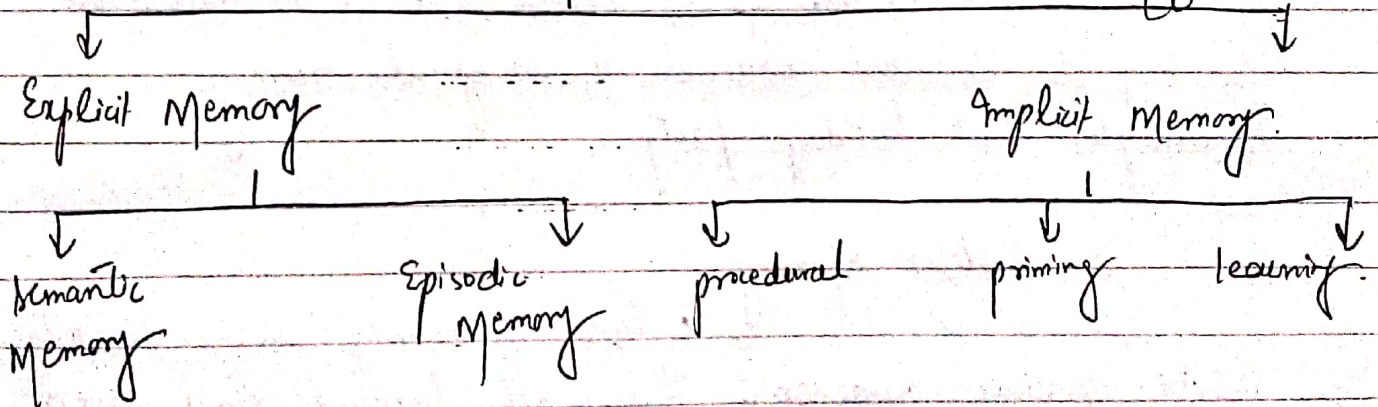 Explicit Memory
Implicit Memory.
Semantic
Memory
Episodic
Memory
procedural
priming
learning.